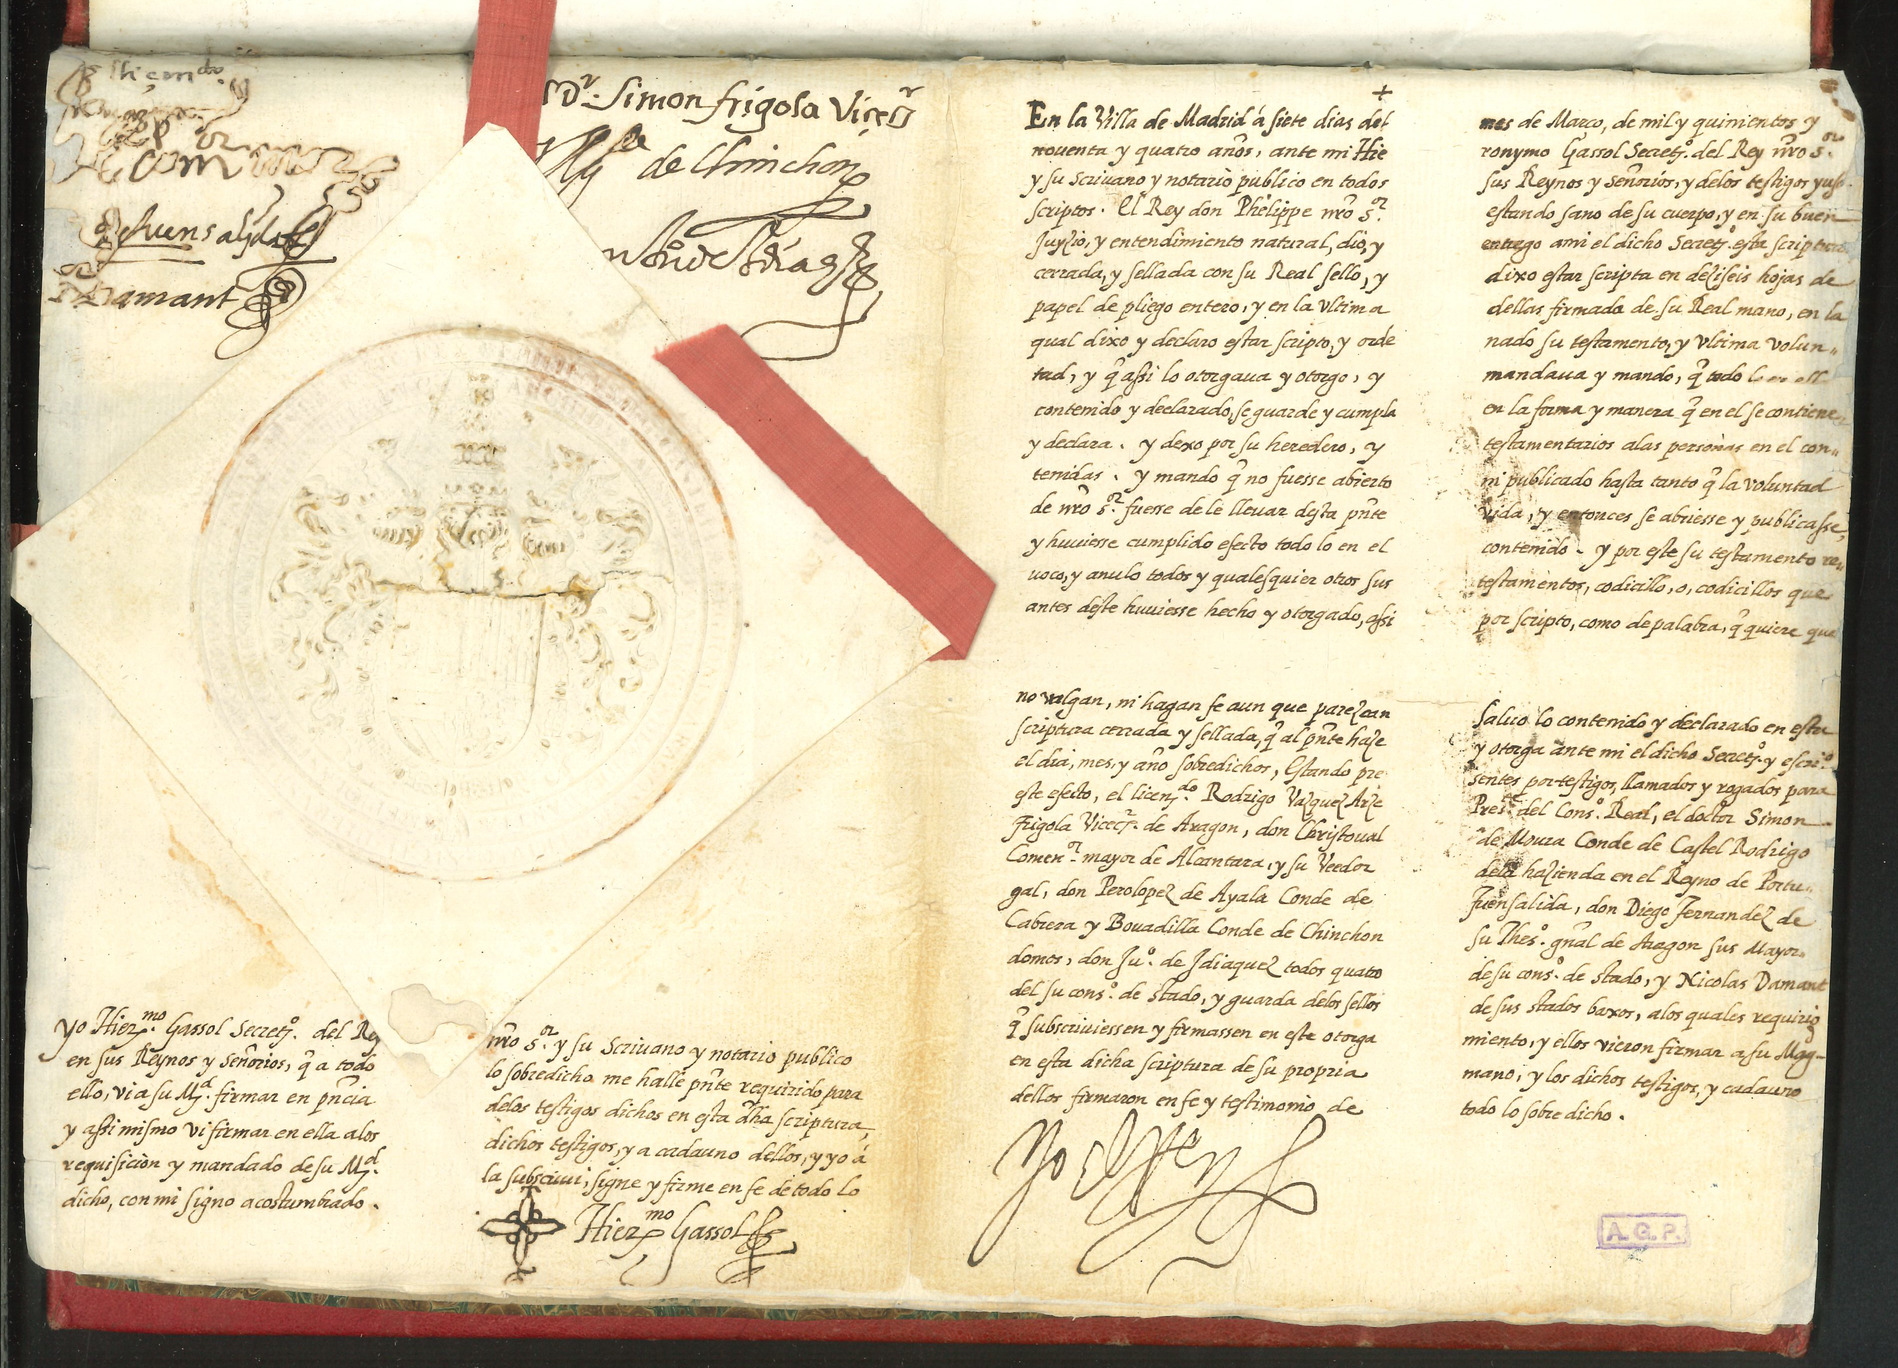 El licen.do
D.r Simon frigola Viçeçr
el Conde de Chinchon
El com.or mayor
el c. de fuensalida
Damant
don Ju.o de Idiaquez
yo Hier.mo Gassol Secret.o del Rey nr̃o S.or y su Scriuano y notario publico
en sus Reynos y Señorios, q̃ a todo lo sobredicho me halle pñte requirido para
ello, vi a su M.d firmar en pñcia delos testigos dichos en esta dh̃a scriptura,
y assi mismo vi firmar en ella alos dichos testigos, y a cadauno dellos, y yo á
requisicion y mandado de su M.d la subscriui, signe y firme en fe de todo lo
dicho, con mi signo acostumbrado.
Hier.mo Gassol
+
En la Villa de Madrid á siete dias del mes de Março, de mil y quinientos y
nouenta y quatro años, ante mi Hieronymo Gassol Secret.o del Rey nr̃o S.or
y su scriuano y notario publico en todos sus Reynos y Señorios, y delos testigos yuso
scriptos. El Rey don Phelippe nr̃o S.or estando sano de su cuerpo, y en su buen
Juyzio, y entendimiento natural, dio, y entrego ami el dicho Secret.o esta scriptura
cerrada, y sellada con su Real sello, y dixo estar scripta en deziseis hojas de
papel de pliego entero, y en la vltima dellas firmada de su Real mano, en la
qual dixo y declaro estar scripto, y ordenado su testamento, y vltima volun„
tad, y q̃ assi lo otorgaua y otorgo, y mandaua y mando, q̃ todo lo en ell
contenido y declarado, se guarde y cumpla en la forma y manera q̃ en el se contiene,
y declara. y dexo por su heredero, y testamentarios alas personas en el con„
tenidas. y mando q̃ no fuesse abierto ni publicado hasta tanto q̃ la voluntad
de nr̃o S.or fuesse de le lleuar desta pñte vida, y entonces se abriesse y publicasse,
y huuiesse cumplido efecto todo lo en el contenido. y por este su testamento re„
uoco, y anulo todos y qualesquier otros sus testamentos, codicillo, o, codicillos que
antes deste huuiesse hecho y otorgado, assi por scripto, como de palabra, q̃ quiere que
no valgan, ni hagan fe aun que parezcan saluo lo contenido y declarado en esta
scriptura cerrada y sellada, q̃ al pñte haze y otorga ante mi el dicho Secret.o y escri.o
el dia, mes, y año sobredichos, Estando presentes por testigos, llamados y rogados para
este efecto, el licen.do Rodrigo Vazquez Arze Presi.te del Cons.o Real, el doctor Simon
Frigola Vicecr. de Aragon, don Christoual de Moura Conde de Castel Rodrigo
Comen.or mayor de Alcantara, y su Veedor dela hazienda en el Reyno de Portu„
gal, don Perolopez de Ayala Conde de Fuensalida, don Diego Fernandez de
Cabrera y Bouadilla Conde de Chinchon su Thes.o gñal de Aragon sus Mayor„
domos, don Ju.o de Idiaquez todos quatro de su cons.o de stado, y Nicolas Damant
del su cons.o de stado, y guarda delos sellos de sus stados baxos, alos quales requirio
q̃ subscriuiessen y firmassen en este otorgamiento, y ellos vieron firmar a su Mag.d
en esta dicha scriptura de su propria mano, y los dichos testigos, y cadauno
dellos firmaron en fe y testimonio de todo lo sobredicho.
Yo el Rey
A. G. P.